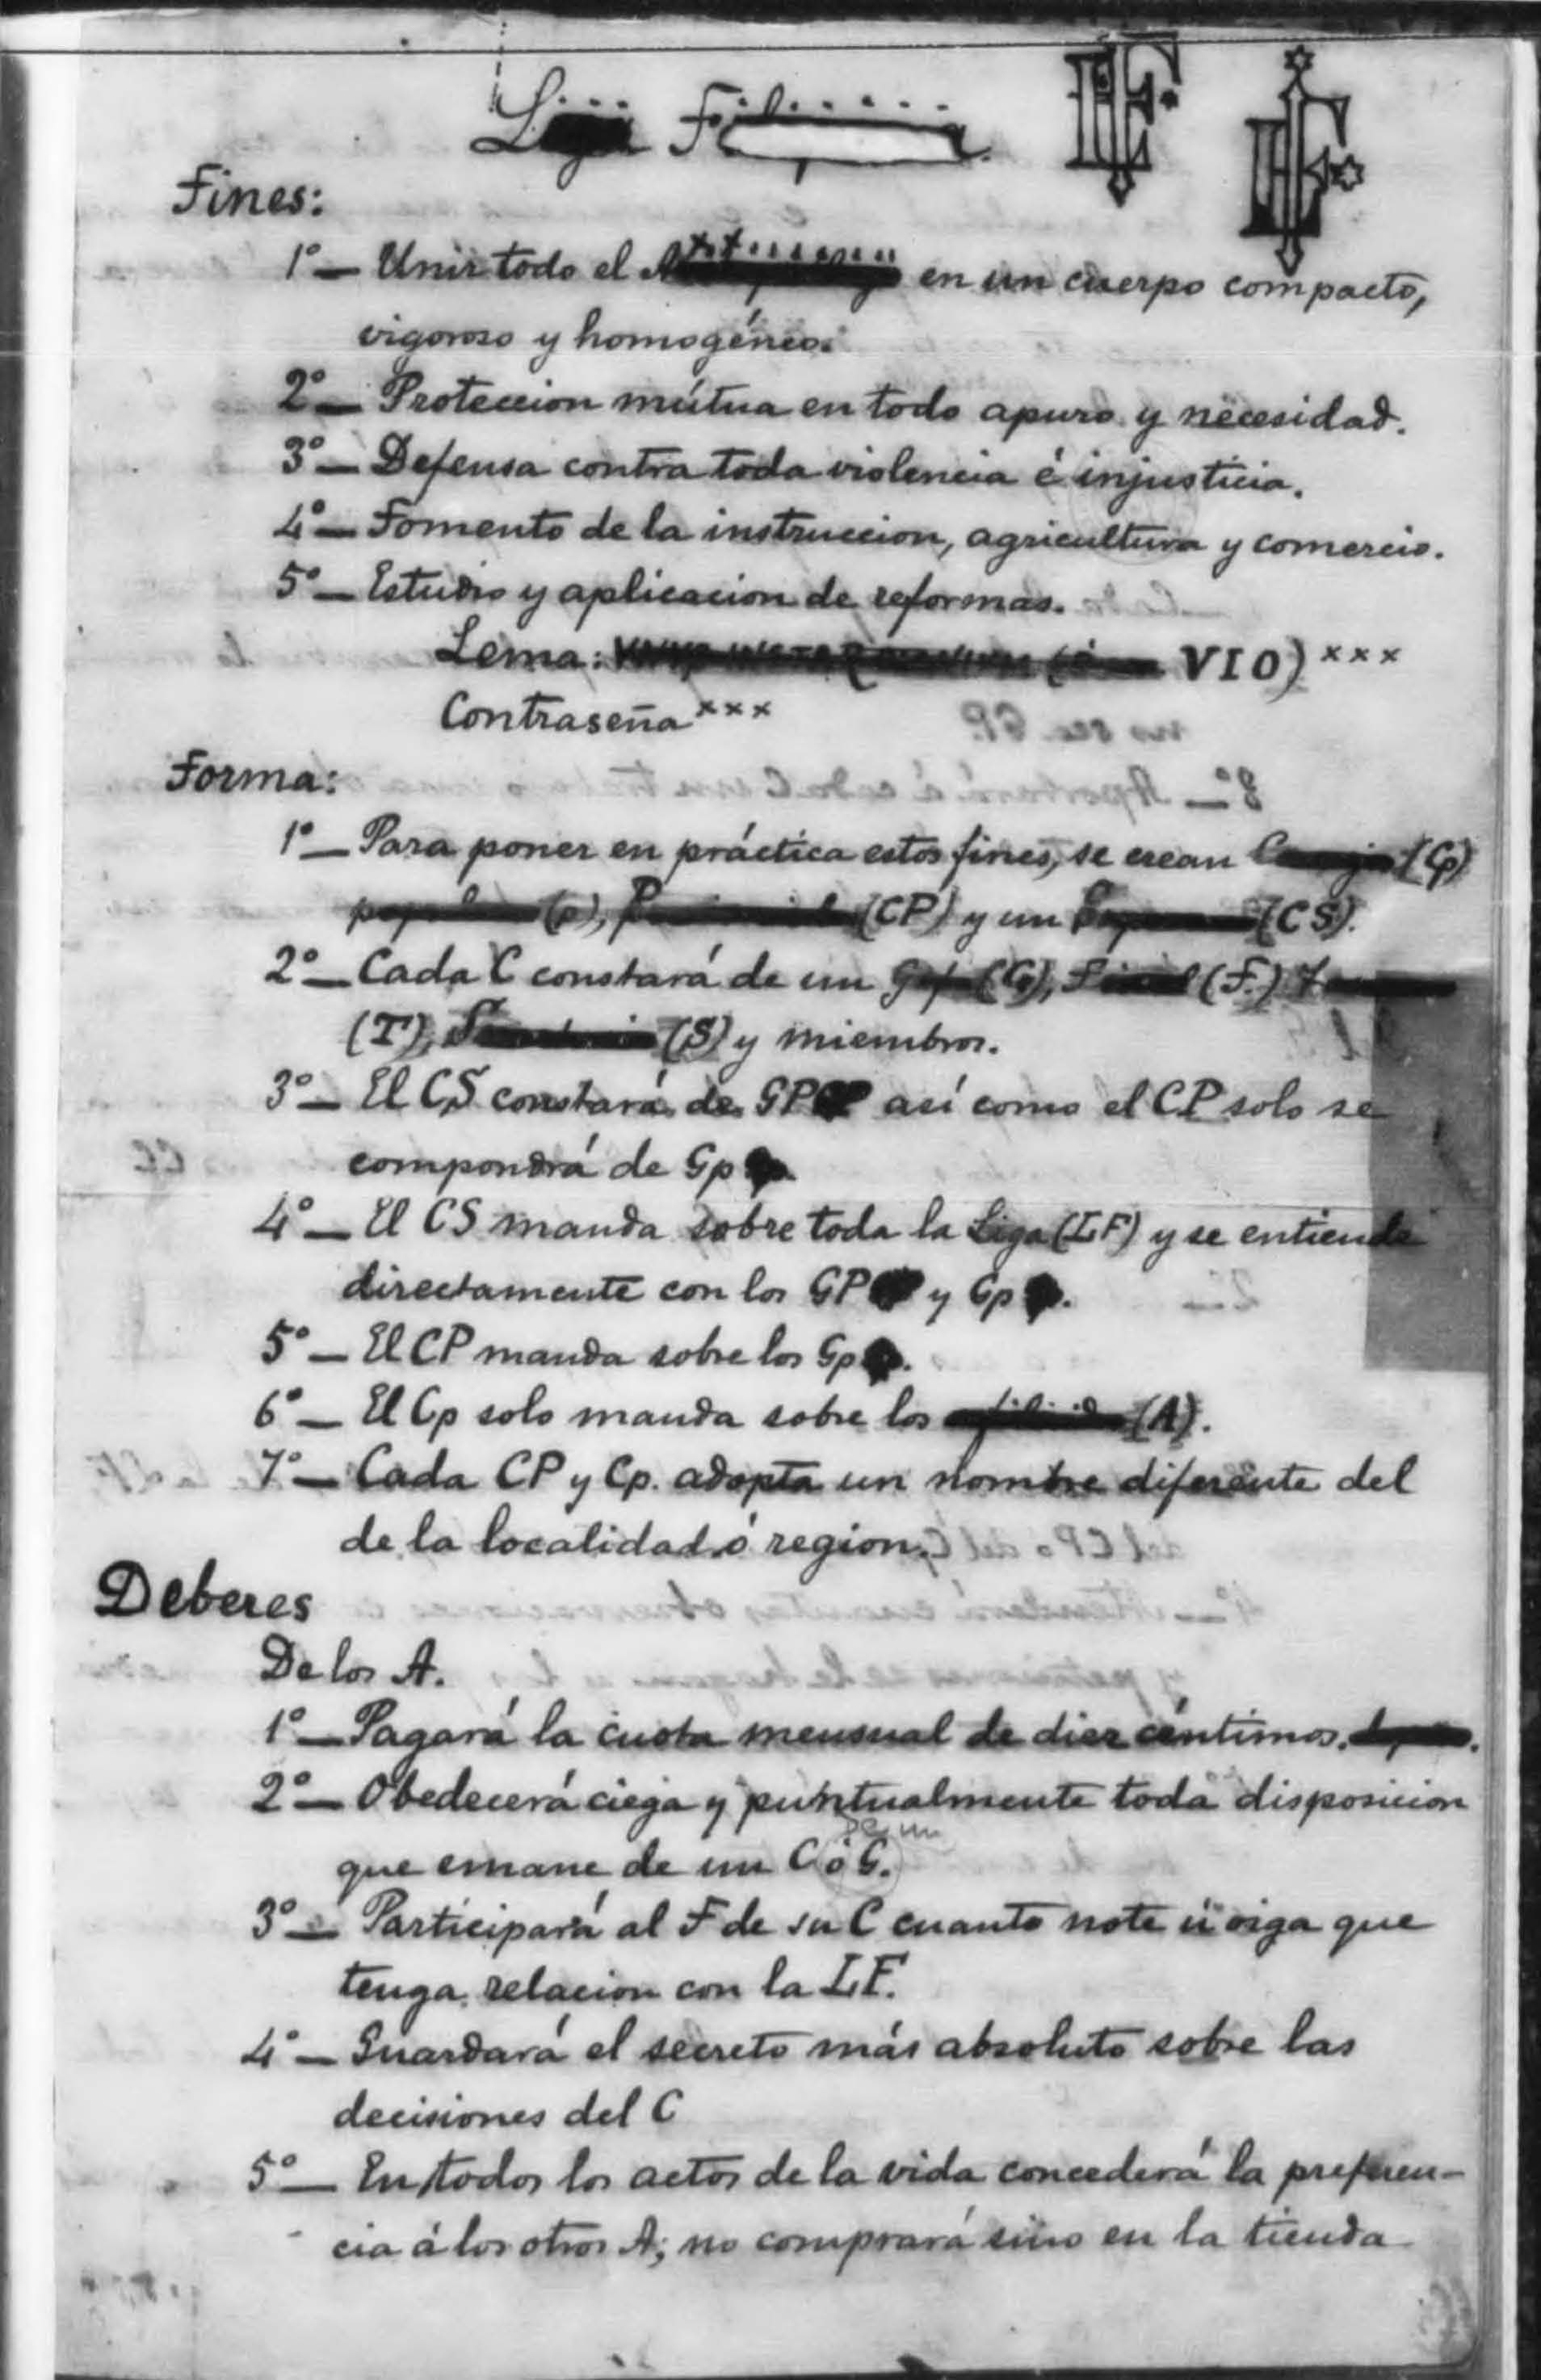 Liga F
LF. LF
Fines:
1º— Unir todo el en un cuerpo compacto,
vigoroso y homogéneo.
2º— Proteccion mútua en todo apuro y necesidad.
3º— Defensa contra toda violencia é injusticia.
4º— Fomento de la instruccion, agricultura y comercio.
5º— Estudio y aplicacion de reformas.
Lema: VIO) xxx
Contraseña xxx
Forma:
1º— Para poner en práctica estos fines, se crean (Cp)
(p), (CP) y un (CS).
2º— Cada C constará de un (G), (F.)
(T), (S) y miembros.
3º— El CS constará de GP así como el CP solo se
compondrá de Gp
4º— El CS manda sobre toda la Liga (LF) y se entiende
directamente con los GP y Gp .
5º— El CP manda sobre los Gp .
6º— El Cp solo manda sobre los (A).
7º— Cada CP y Cp. adopta un nombre diferente del
de la localidad ó region.
Deberes
De los A.
1º— Pagará la cuota mensual de diez céntimos.
2º— Obedecerá ciega y puntualmente toda disposicion
que emane de un C ó G.
3º— Participará al F de su C cuanto note ú oiga que
tenga relacion con la LF.
4º— Guardará el secreto más absoluto sobre las
decisiones del C
5º— En todos los actos de la vida concederá la preferen-
cia á los otros A; no comprará sino en la tienda